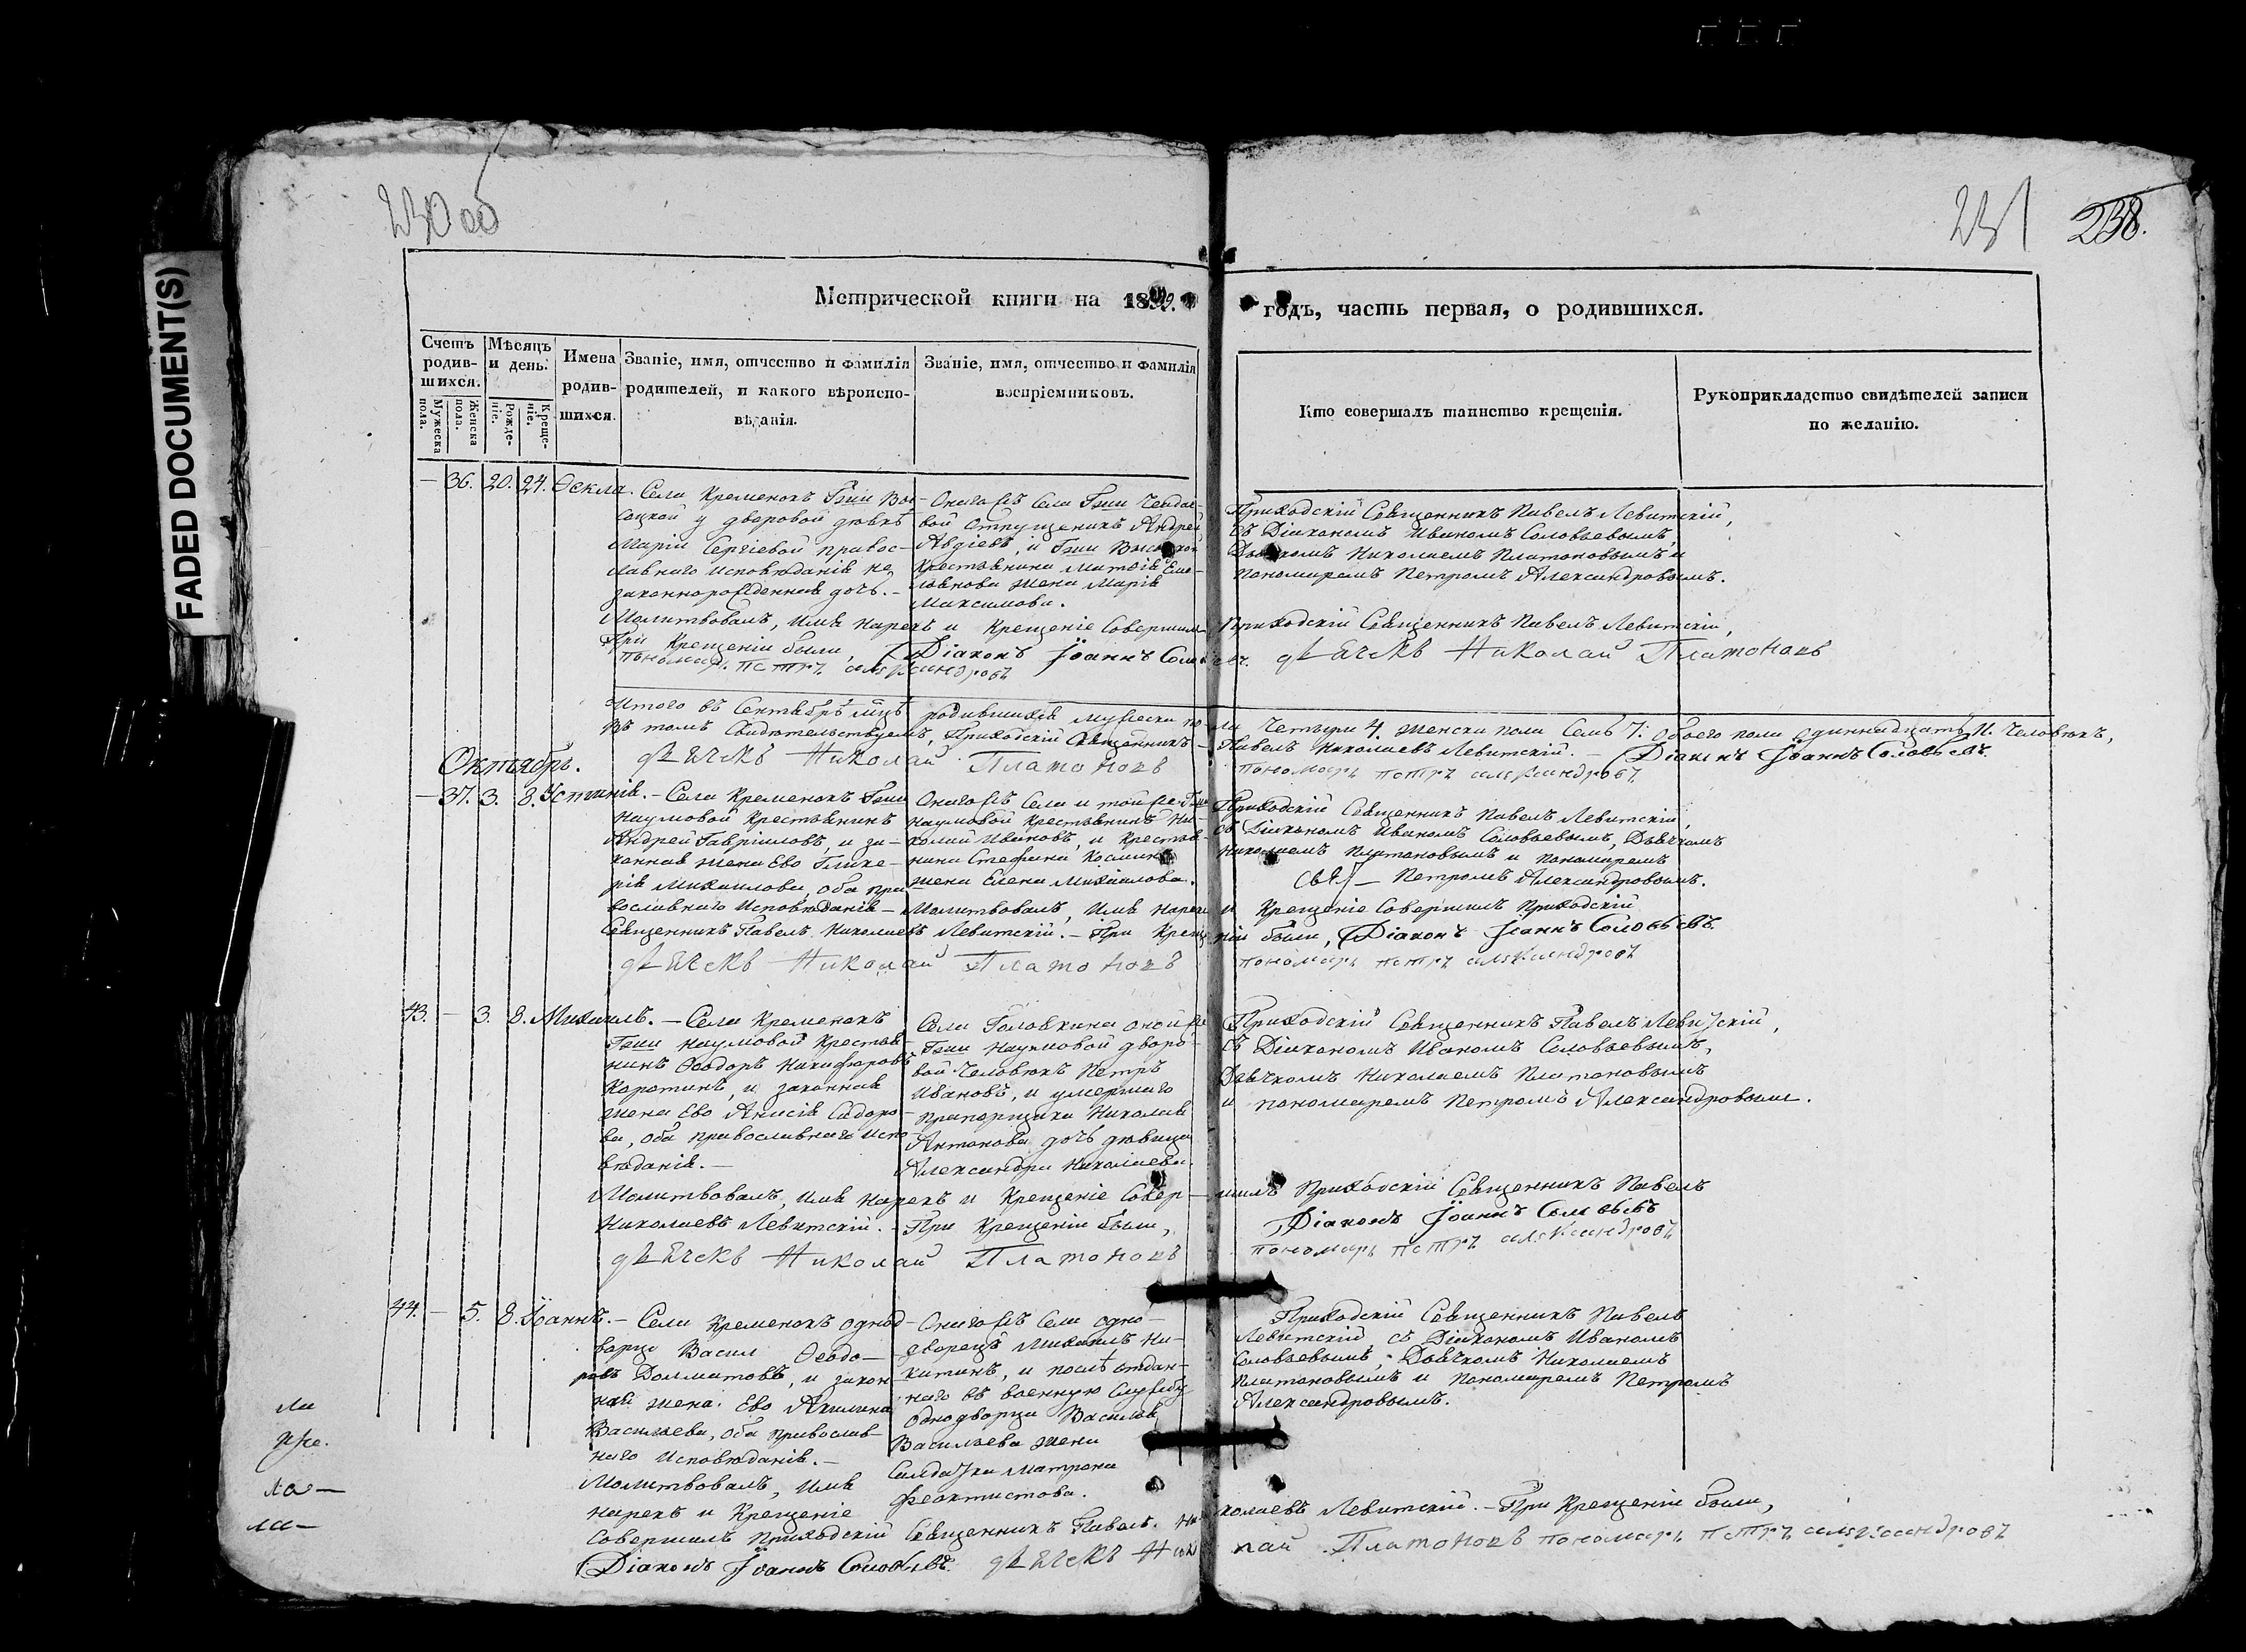 FADED DOCUMENT(S)
230 об
231 238.
Метрической книги на 1839. годъ, часть первая, о родившихся.
Счетъ родив-шихся.
Мужеска пола.
Женска пола.
Мѣсяцъ и день.
Рожде-ніе.
Креще-ніе.
Имена родив-шихся.
Званіе, имя, отчество и фамилія
родителей, и какого вѣроиспо-
вѣданія.
Званіе, имя, отчество и фамилія
воспріемниковъ.
Кто совершалъ таинство крещенія.
Рукоприкладство свидѣтелей записи
по желанію.
— 36. 20. 24. Ѳекла.
Села Кременокъ Гжи Вы-
соцкой у дворовой дѣвки
Маріи Сергіевой правос-
лавнаго исповѣданія не
законнорожденная дочь. —
Онагожъ Села Гжи
вой Отпущеникъ Андрей
Авдіевъ, и Гжи Высоцкой
Крестьянина
жена Марія
Максимова.
Приходскій Священникъ Павелъ Левитскій,
съ Діакономъ Иваномъ Соловьевымъ,
Дьячкомъ Николаемъ Платоновымъ и
пономаремъ Петромъ Александровымъ.
Молитвовалъ, имя нарекъ и Крещеніе Совершилъ Приходскій Священникъ Павелъ Левитскій,
При Крещеніи были, Діаконъ Іоаннъ Соловьевъ. дьячекъ Николай Платоновъ
пономарь петръ александровъ
Итого въ Сентябрѣ мцѣ родившихся мужеска пола Четыри 4. женска пола Семь 7: обоего пола одиннадцать 11. Человѣкъ,
Въ томъ Свидѣтельствуемъ, Приходскій Священникъ Павелъ Николаевъ Левитскій. — Діаконъ Іоаннъ Соловьевъ.
дьячекъ Николай Платоновъ пономарь петръ александровъ
Октябрь.
— 37. 3. 8. Устинія. —
Села Кременокъ Гжи
Наумовой Крестьянинъ
Андрей Гавріиловъ, и за-
конная жена Ево Глике-
рія Михаилова, оба пра-
вославнаго исповѣданія —
Онагожъ Села и тойже Гжи
Наумовой Крестьянинъ Ни-
колай Ивановъ, и Крестья-
нина Стефана Космина
жена Елена Михаилова.
Приходскій Священникъ Павелъ Левитскій,
съ Діакономъ Иваномъ Соловьевымъ, Дьячкомъ
Николаемъ Платоновымъ и пономаремъ
Петромъ Александровымъ.
Молитвовалъ, имя нарекъ и Крещеніе Совершилъ Приходскій
Священникъ Павелъ Николаевъ Левитскій. — При Крещеніи были, Діаконъ Іоаннъ Соловьевъ.
дьячекъ Николай Платоновъ пономарь петръ александровъ
43. — 3. 8. Михаилъ. —
Села Кременокъ
Гжи Наумовой Крестья-
нинъ Ѳеодоръ Никифоровъ
Коротинъ, и законная
жена Ево Анисія Сидоро-
ва, оба православнаго испо-
вѣданія. —
Села Головкина онойже
Гжи Наумовой дворо-
вой Человѣкъ Петръ
Ивановъ, и умершаго
прапорщика Николая
Антонова дочь дѣвица
Александра Николаева.
Приходскій Священникъ Павелъ Левитскій,
съ Діакономъ Иваномъ Соловьевымъ,
Дьячкомъ Николаемъ Платоновымъ
и пономаремъ Петромъ Александровымъ.
Молитвовалъ, имя нарекъ и Крещеніе Совер-шилъ Приходскій Священникъ Павелъ
Николаевъ Левитскій. — При Крещеніи были, Діаконъ Іоаннъ Соловьевъ
дьячекъ Николай Платоновъ пономарь петръ александровъ
44. — 5. 8. Іоаннъ. —
Села Кременокъ однод-
ворца Васил Ѳеодо-
ровъ Долматовъ, и закон-
ная жена Ево Акилина
Васильева, оба православ-
наго исповѣданія. —
Онагожъ Села одно-
дворецъ Михаилъ Ни-
китинъ, и послѣ отдан-
наго въ военную Службу
Однодворца Василья
Васильева жена
Салдатка Матрона
Феоктистова.
Приходскій Священникъ Павелъ
Левитскій, съ Діакономъ Иваномъ
Соловьевымъ, Дьячкомъ Николаемъ
Платоновымъ и Пономаремъ Петромъ
Александровымъ.
Молитвовалъ, имя
нарекъ и Крещеніе
Совершилъ Приходскій Священникъ Павелъ Николаевъ Левитскій. — При Крещеніи были,
Діаконъ Іоаннъ Соловьевъ. дьячекъ Николай Платоновъ пономарь петръ александровъ